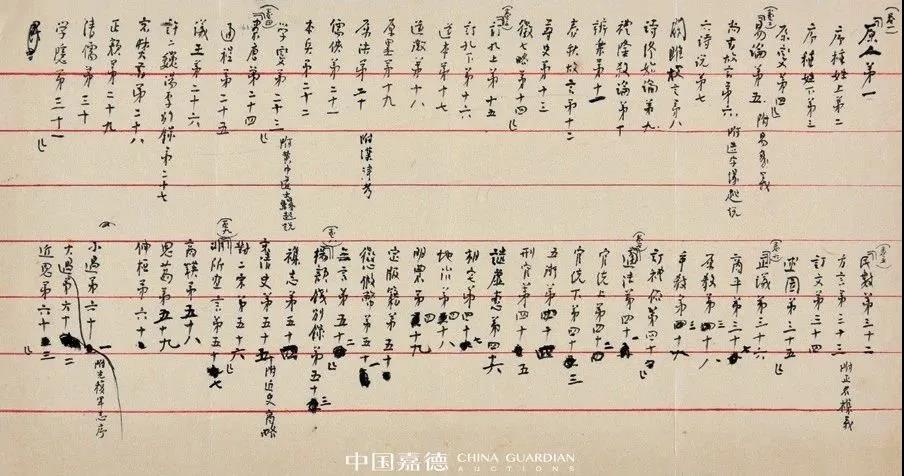 卷一
原人第一
序種姓上第二
序種姓下第三
原變第四
卷二
易論第五 附易象義
尚書故言第六 附造字緣起説
六詩説第七
關雎故言第八
詩終始論第九
禮隆殺論第十
辨樂第十一
春秋故言第十二
尊史第十三
徵七略第十四
卷三
訂孔上第十五
訂孔下第十六
道本第十七
道微第十八
原墨第十九
原法第二十 附漢律考
儒俠第二十一
本兵第二十二
學變第二十三 附黃巾道士緣起説
卷四
案唐第二十四
通程第二十五
議王第二十六
訂二魏湯李別錄第二十七
哀焚書第二十八
正顏第二十九
清儒第三十
學隱第三十一
卷五
民數第三十二
方言第三十三 附正名雜義
訂文第三十四
述圖第三十五
卷六
正議第三十六
商平第三十七
原教第三十八
爭教第三十九
訂禮俗第四十
卷七
通法第四十一
官統上第四十二
官統下第四十三
五術第四十四
刑官第四十五
譴虛惠第四十六
相宅第四十七
地治第四十八
明農第四十九
定版籍第五十
懲假幣第五十一
無言第五十二
卷八
楊顏錢別錄第五十三
雜志第五十四
哀清史第五十五 附近史商略
對二宋第五十六
卷九
非所宜言第五十七
商鞅第五十八
思葛第五十九
伸桓第六十
小過第六十一 附光復軍志序
大過第六十二
近思第六十三
中国嘉德 CHINA GUARDIAN AUCTIONS